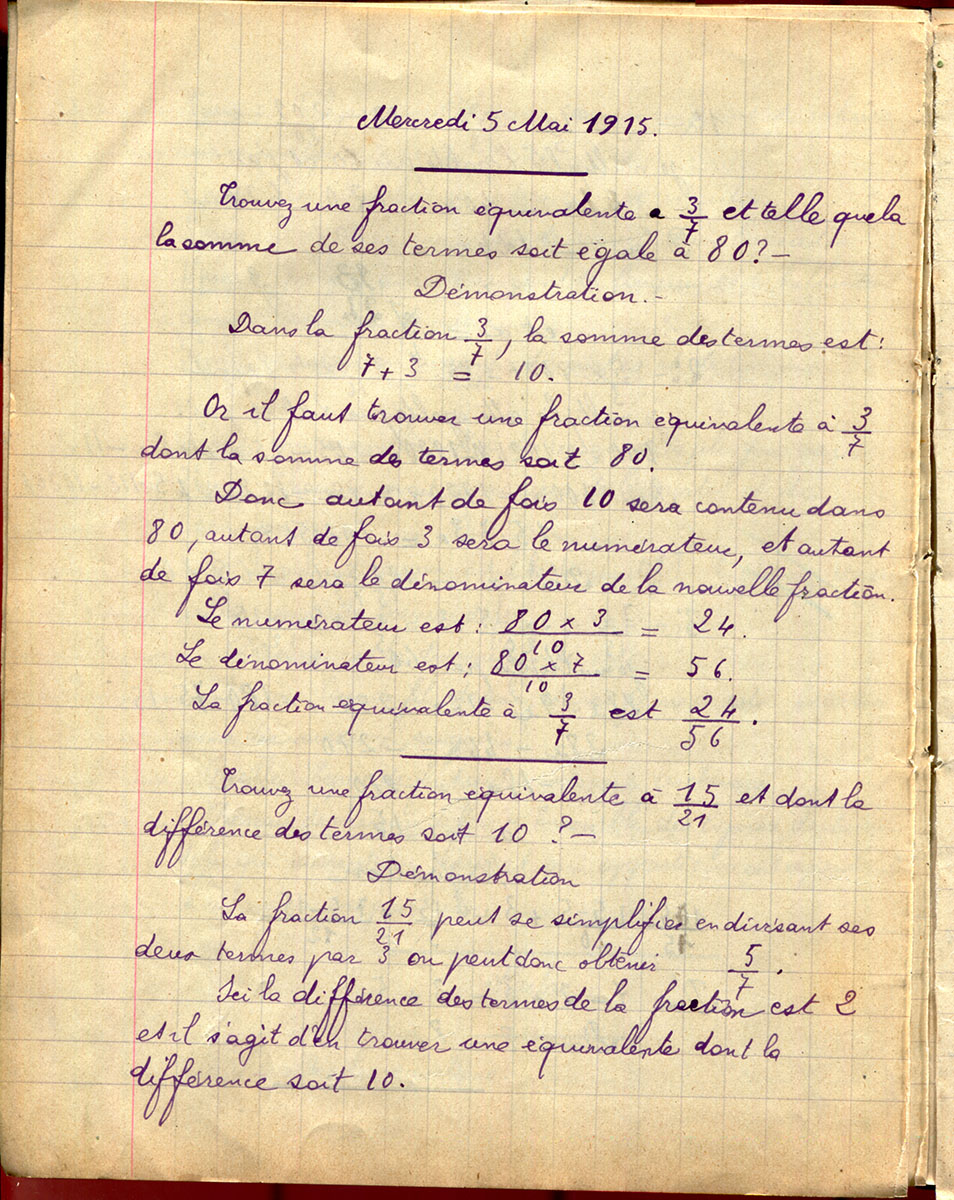 Mercredi 5 Mai 1915.
Trouvez une fraction équivalente a 3/7 et telle que la
la somme de ses termes soit égale à 80? —
Démonstration. -
Dans la fraction 3/7, la somme des termes est:
7 + 3 = 10.
Or il faut trouver une fraction équivalente à 3/7
dont la somme des termes soit 80.
Donc autant de fois 10 sera contenu dans
80, autant de fois 3 sera le numérateur, et autant
de fois 7 sera le dénominateur de la nouvelle fraction.
Le numérateur est: 80 x 3 / 10 = 24.
Le dénominateur est: 80 x 7 / 10 = 56.
La fraction équivalente à 3/7 est 24/56.
Trouvez une fraction équivalente à 15/21 et dont la
différence des termes soit 10 ? —
Démonstration
La fraction 15/21 peut se simplifier en divisant ses
deux termes par 3 on peut donc obtenir 5/7.
Ici la différence des termes de la fraction est 2
et il s'agit d'en trouver une équivalente dont la
différence soit 10.